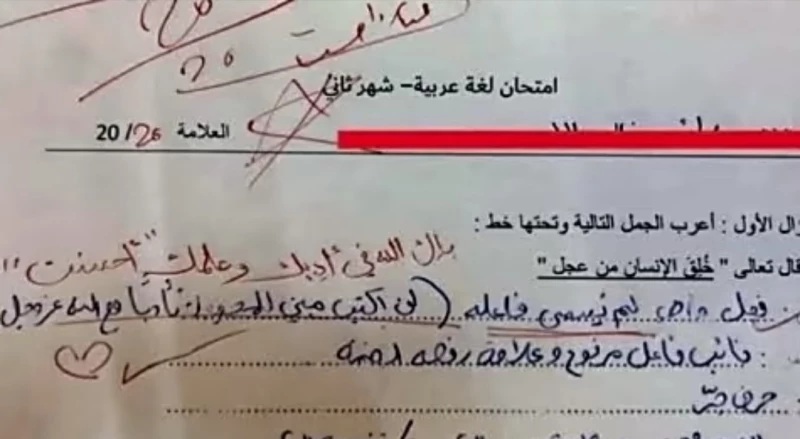 احسنت
20
امتحان لغة عربية– شهر ثاني
العلامة 20/20
ؤال الأول : أعرب الجمل التالية وتحتها خط :
بارك الله في أدبك وعلمك "أحسنت"
قال تعالى " خُلِقَ الإنسان من عجل "
فعل ماض لم يُسمى فاعله (لن اكتب مبني للمجهول تأدبا مع الله عز وجل
: نائب فاعل مرفوع وعلامة رفعه الضمة
حرف جرّ